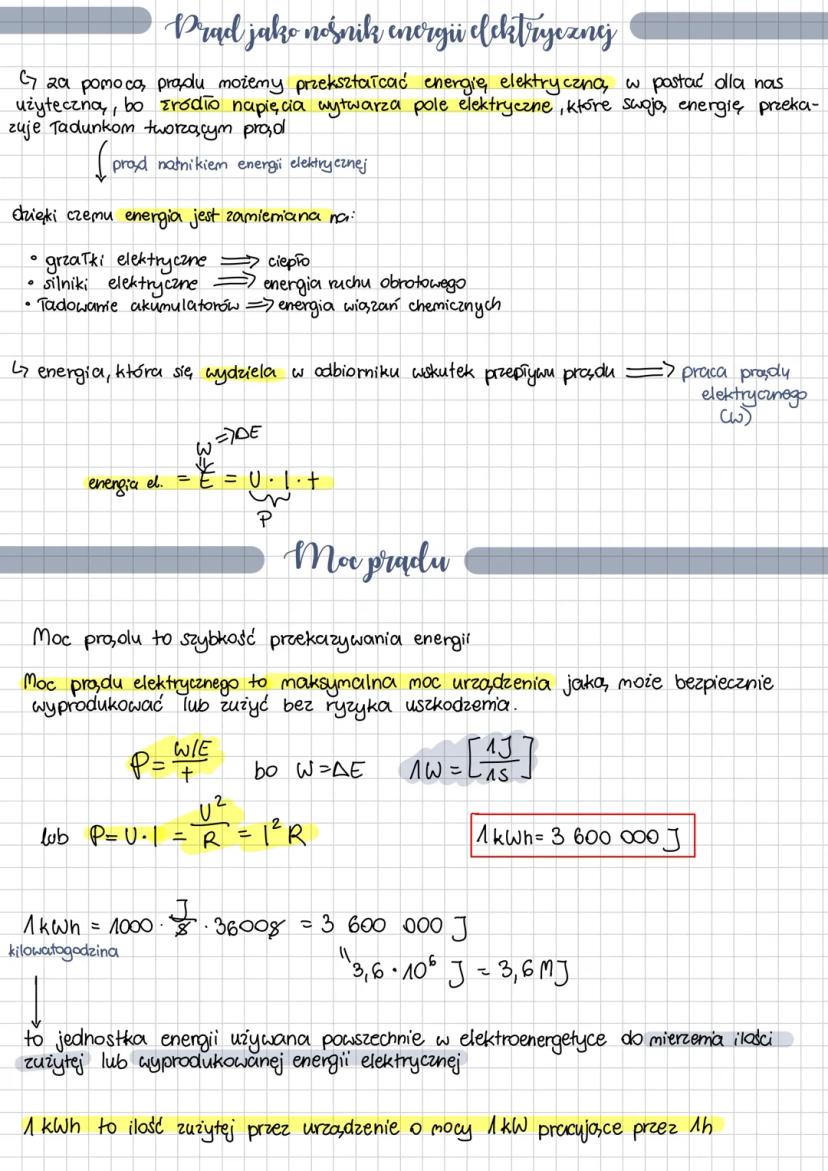 Prąd jako nośnik energii elektrycznej
↳ za pomocą prądu możemy przekształcać energię elektryczną w postać dla nas
użyteczną, bo źródło napięcia wytwarza pole elektryczne, które swoją energię przeka-
zuje ładunkom tworzącym prąd
prąd nośnikiem energii elektrycznej
dzięki czemu energia jest zamieniana na:
• grzałki elektryczne => ciepło
• silniki elektryczne => energia ruchu obrotowego
• ładowanie akumulatorów => energia wiązań chemicznych
↳ energia, która się wydziela w odbiorniku wskutek przepływu prądu => praca prądu
elektrycznego
(W)
W => ΔE
energia el. = E = U · I · t
P
Moc prądu
Moc prądu to szybkość przekazywania energii
Moc prądu elektrycznego to maksymalna moc urządzenia jaką może bezpiecznie
wyprodukować lub zużyć bez ryzyka uszkodzenia.
P = W/E / t bo W = ΔE 1W = [1J / 1s]
lub P = U · I = U² / R = I² R 1 kWh = 3 600 000 J
1 kWh = 1000 · J/s · 3600s = 3 600 000 J
kilowatogodzina
" 3,6 · 10⁶ J = 3,6 MJ
to jednostka energii używana powszechnie w elektroenergetyce do mierzenia ilości
zużytej lub wyprodukowanej energii elektrycznej
1 kWh to ilość zużytej przez urządzenie o mocy 1 kW pracujące przez 1h